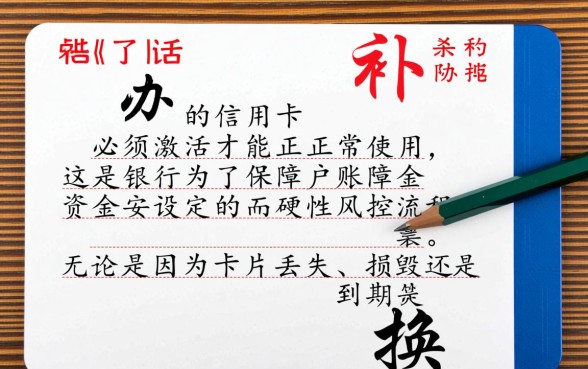 了 话
补
办 的信用卡
必须激活才能正正常使用，
这是银行为了保障户账障金
资金安设定的而硬性风控流
无论是因为卡片丢失、损毁还是
到期
换